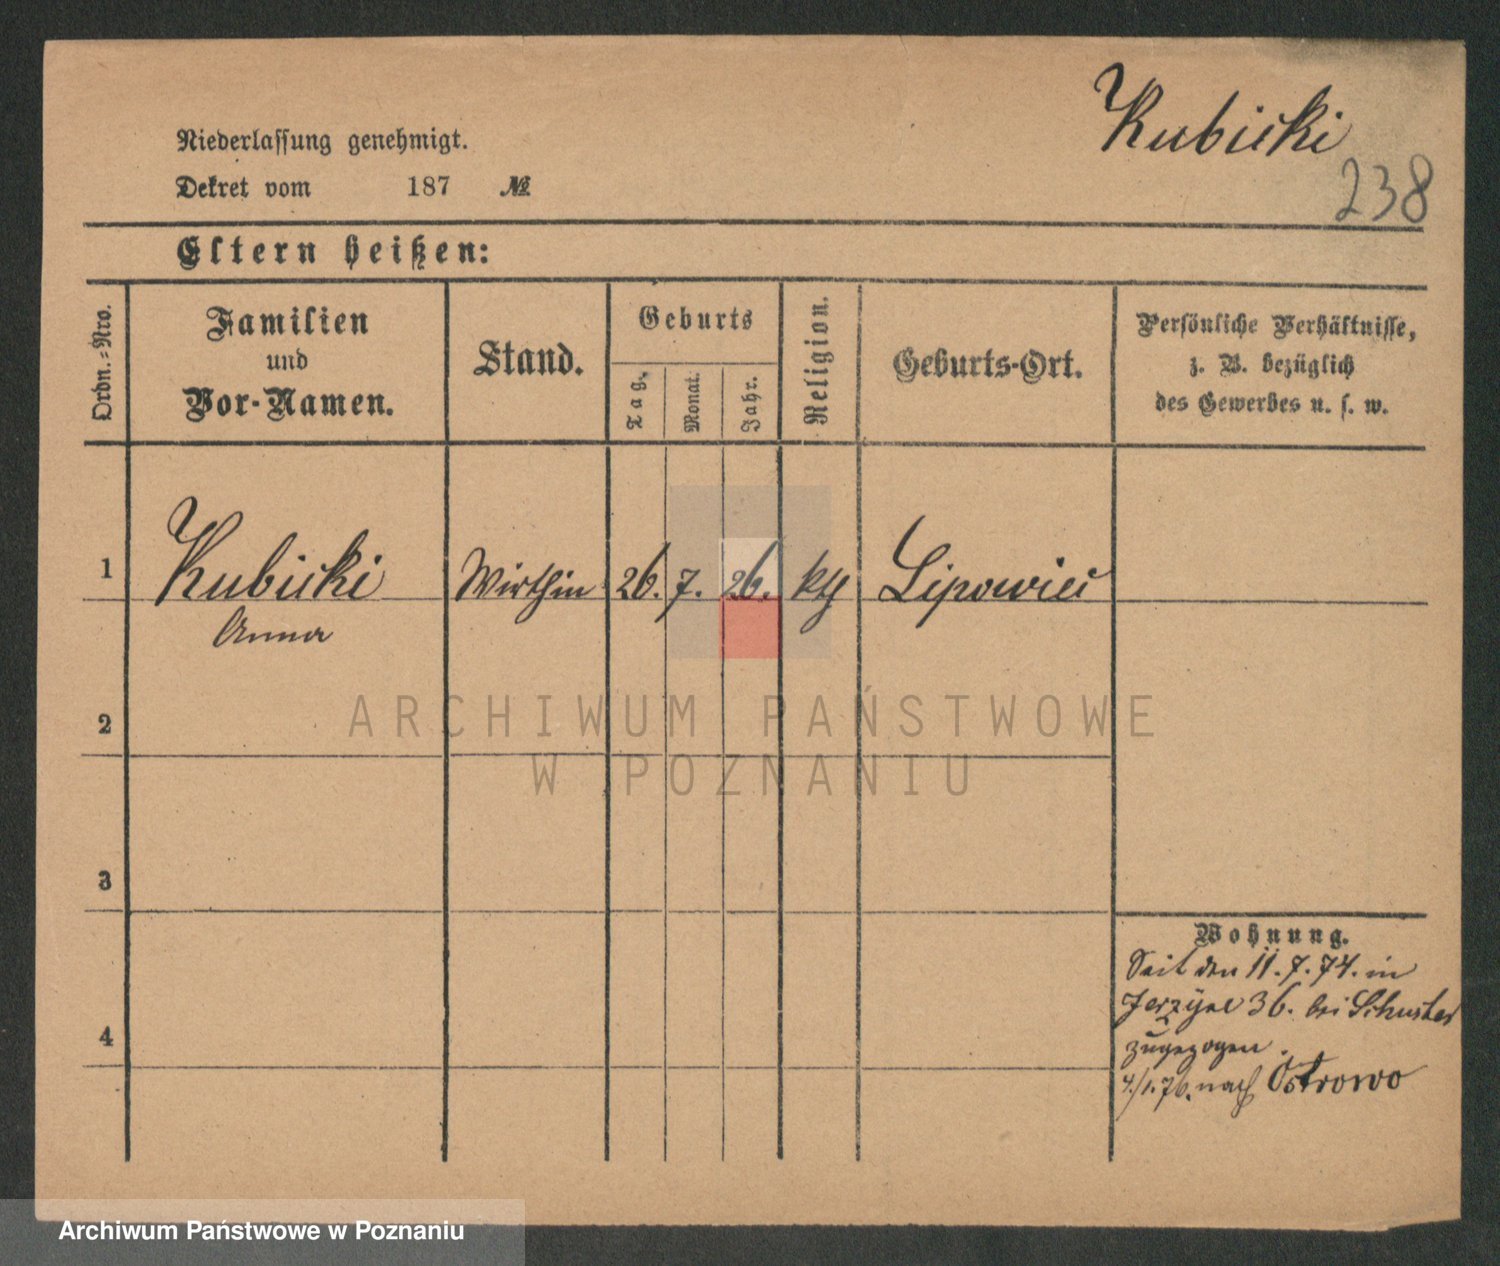 Kubicki
238
Niederlassung genehmigt.
Dekret vom 187 №
Eltern heißen:
Ordn.-Nro.
Familien
und
Vor-Namen.
Stand.
Geburts
Tag.
Monat.
Jahr.
Religion.
Geburts-Ort.
Persönliche Verhältnisse,
z. B. bezüglich
des Gewerbes u. s. w.
1 Kubicki Wirthin 26. 7. 26. kth Lipowiec
Anna
2
3
4
Wohnung.
Seit den 11.7.74. in
36. bei Schuster
zugezogen.
4./1.76. nach Ostrowo
ARCHIWUM PAŃSTWOWE
W POZNANIU
Archiwum Państwowe w Poznaniu